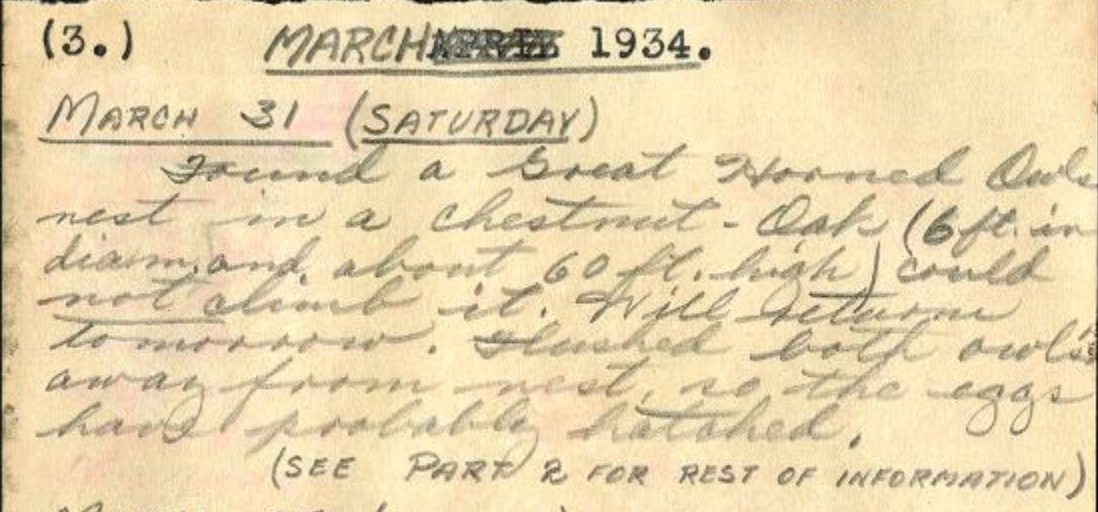 (3.) MARCH APRIL 1934.
MARCH 31 (SATURDAY)
Found a Great Horned Owls
nest in a chestnut-Oak (6 ft. in
diam. and about 60 ft. high) could
not climb it. Will return
tomorrow. Flushed both owls
away from nest, so the eggs
have probably hatched.
(SEE PART 2 FOR REST OF INFORMATION)